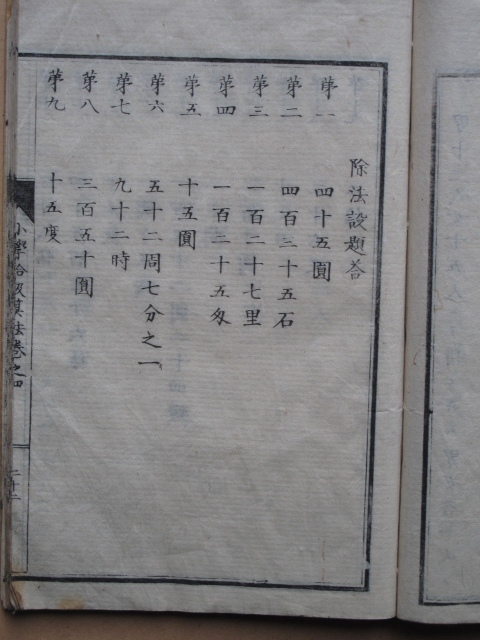 除法設題答
第一 四十五圓
第二 四百三十五石
第三 一百二十七里
第四 一百二十五匁
第五 十五圓
第六 五十二周七分之一
第七 九十二時
第八 三百五十圓
第九 十五度
小學拾級算法卷之四